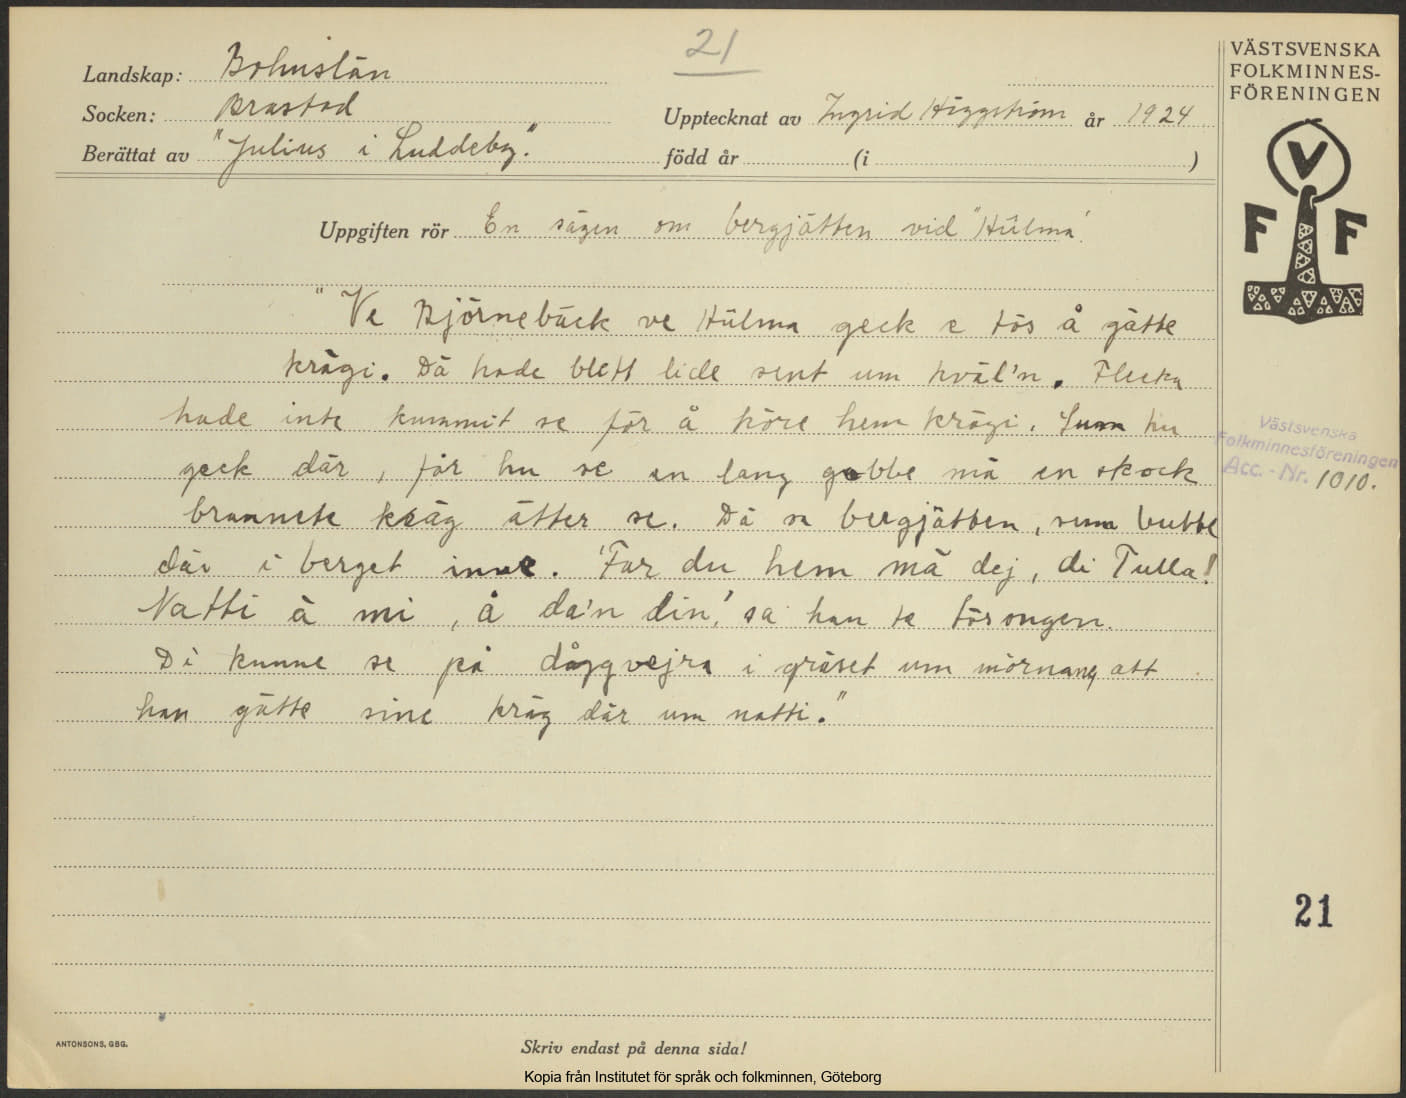 21
Landskap: Bohuslän
Socken: Brastad
Upptecknat av Ingrid Häggström år 1924
Berättat av "Julius i Luddeby."
född år (i )
Uppgiften rör En sägen om bergjätten vid "Hûlma".
"Ve Björnebäck ve Hûlma geck e tös å gätte
krägi. Dä hade blett lide sent um kväl'n. Flecka
hade inte kummit se för å köre hem krägi. Sum hu
geck där, får hu se en lang gubbe mä en skock
brannete kräg ätter se. Dä va bergjätten, sum budde
där i berget inne. 'Far du hem mä dej, di Tulla!
Natti ä mi, å da'n din,' sa han te tösongen.
Di kunne se på dåggvejra i gräset um mörnang att
han gätte sine kräg där um natti."
VÄSTSVENSKA
FOLKMINNES-
FÖRENINGEN
V
F F
Västsvenska
Folkminnesföreningen
Acc.-Nr. 1010.
21
ANTONSONS, GBG.
Skriv endast på denna sida!
Kopia från Institutet för språk och folkminnen, Göteborg